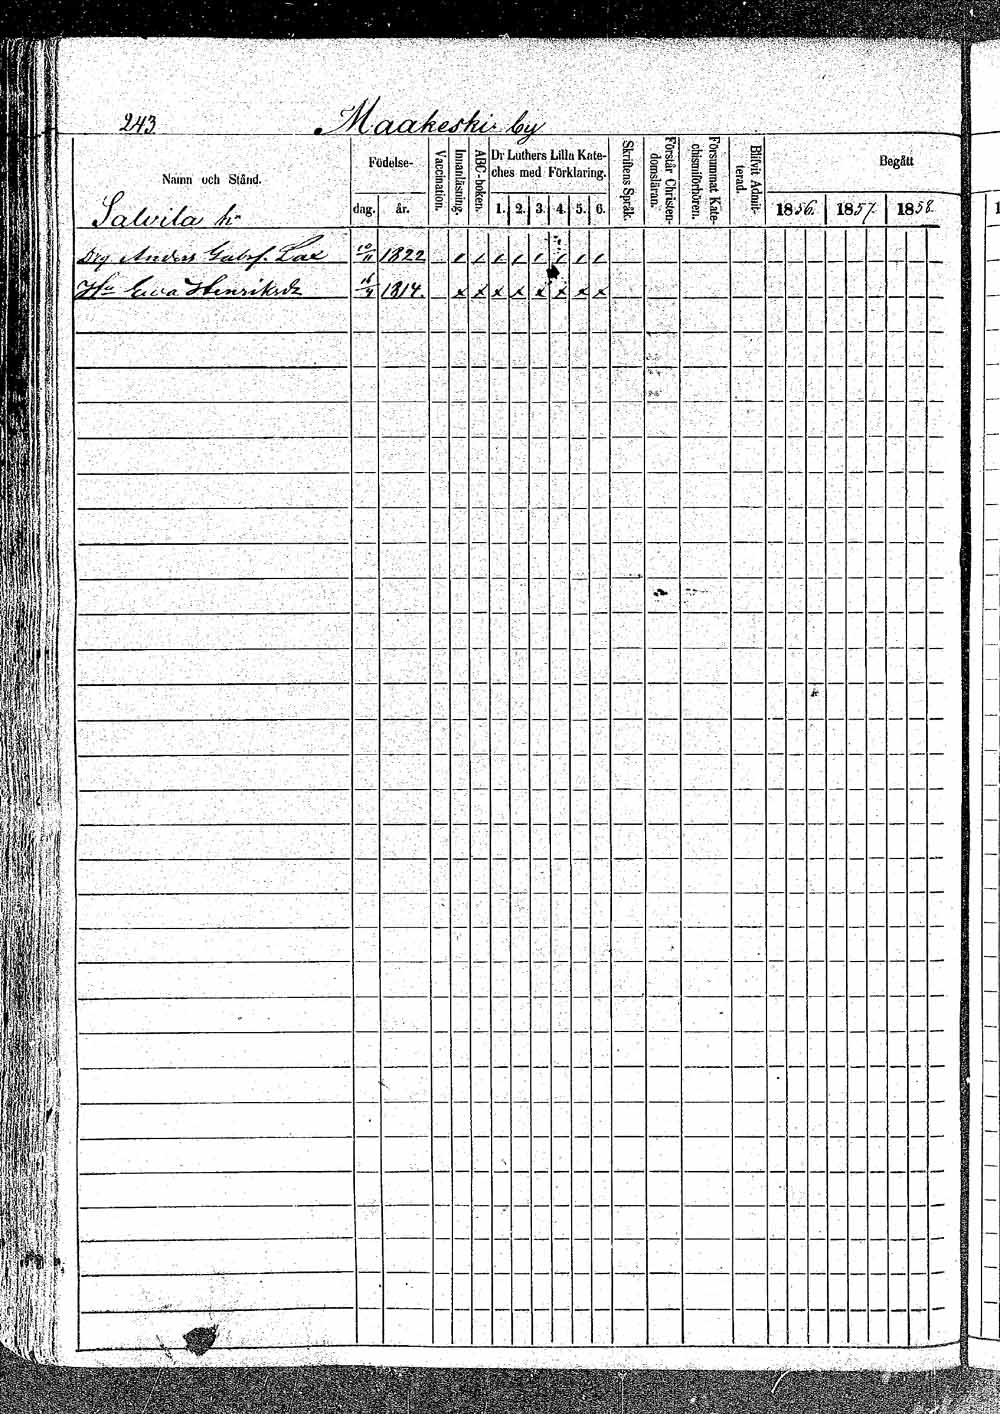 243. Maakeski by
Namn och Stånd.
Födelse-
dag. år.
Vaccination.
Innanläsning.
ABC-boken.
Dr Luthers Lilla Kate-
ches med Förklaring.
1. 2. 3. 4. 5. 6.
Skriftens Språk.
Förstår Christen-
domsläran.
Försummat Kate-
chismiförhören.
Blifvit Admit-
terad.
Begått
1856. 1857. 1858.
1
Salvila hn
Drg Anders Gabrs. Lax 10/11 1822
Hu Ewa Henriksdr 1814.